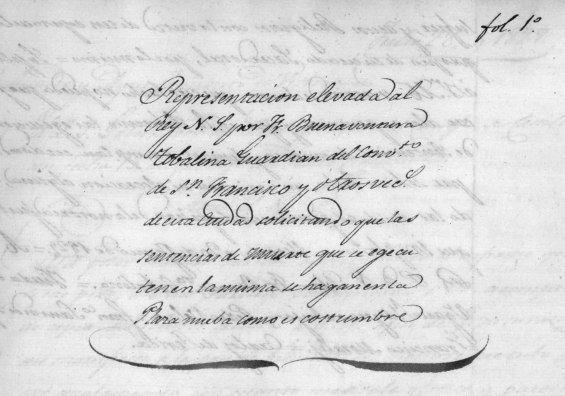 fol. 1º
Representacion elevada al
Rey N. S. por Fr. Buenaventura
Tobalina Guardian del Convto
de Sn. Francisco y otros vecs.
de esta Ciudad solicitando que las
sentencias de muerte que se egecu
ten en la misma se hagan en la
Plaza nueba como es costumbre